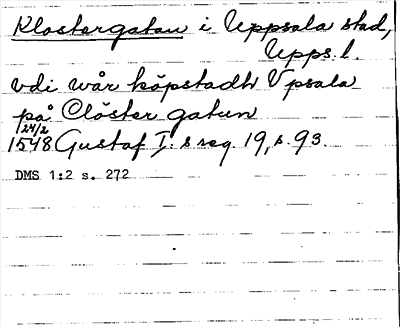 Klostergatan i Uppsala stad,
Upps. l.
vdi wår köpstadh Vpsala
på Clöster gatun
24/2
1548 Gustaf I:s reg. 19, s. 93.
DMS 1:2 s. 272